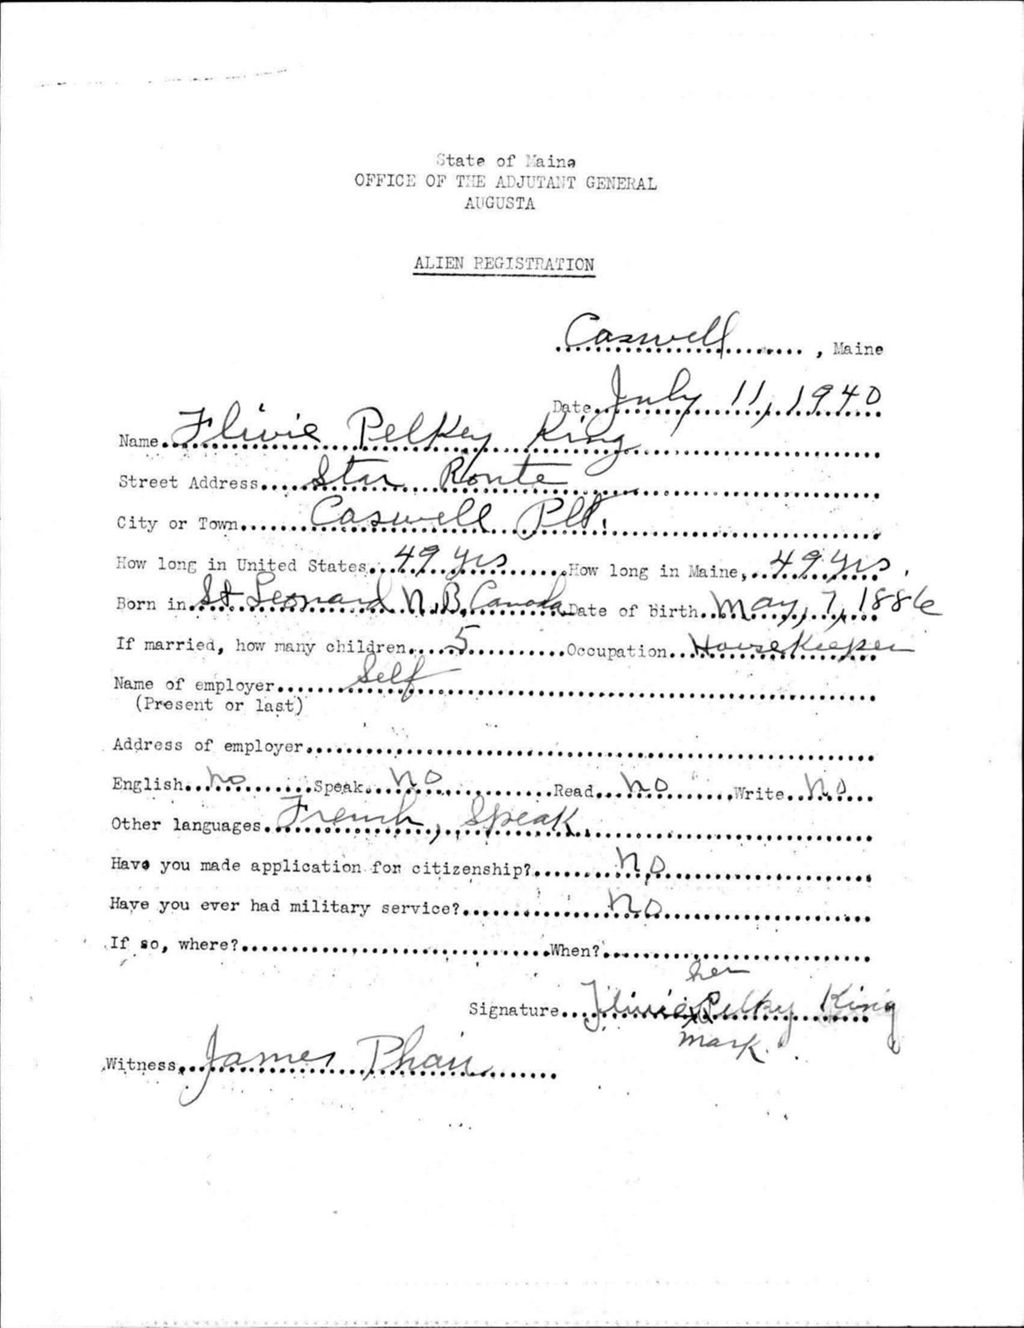 State of Maine
OFFICE OF THE ADJUTANT GENERAL
AUGUSTA
ALIEN REGISTRATION
Caswell, Maine
Date July 11, 1940
Name Flivie Pelkey King
Street Address Star Route
City or Town Caswell Plt.
How long in United States 49 yrs How long in Maine, 49 yrs.
Born in St Leonard N.B. Canada Date of birth May, 7, 1886
If married, how many children 5 Occupation Housekeeper
Name of employer Self
(Present or last)
Address of employer
English no Speak no Read no Write no
Other languages French, Speak
Have you made application for citizenship? no
Have you ever had military service? no
If so, where? When?
her
Signature Flivie X Pelky King
mark.
Witness James Phair